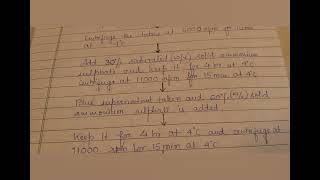 Centrifuge the tubes at 11000 rpm
at 4°C
Add 30% saturated (w/v) solid ammonium
sulphate and keep it for 4 hr at 4°C
centrifuge at 11000 rpm for 15 min at 4°C
supernatant taken and 60% (w/v) solid
ammonium sulphate is added
Keep it for 4 hr at 4°C and centrifuge at
11000 rpm for 15 min at 4°C